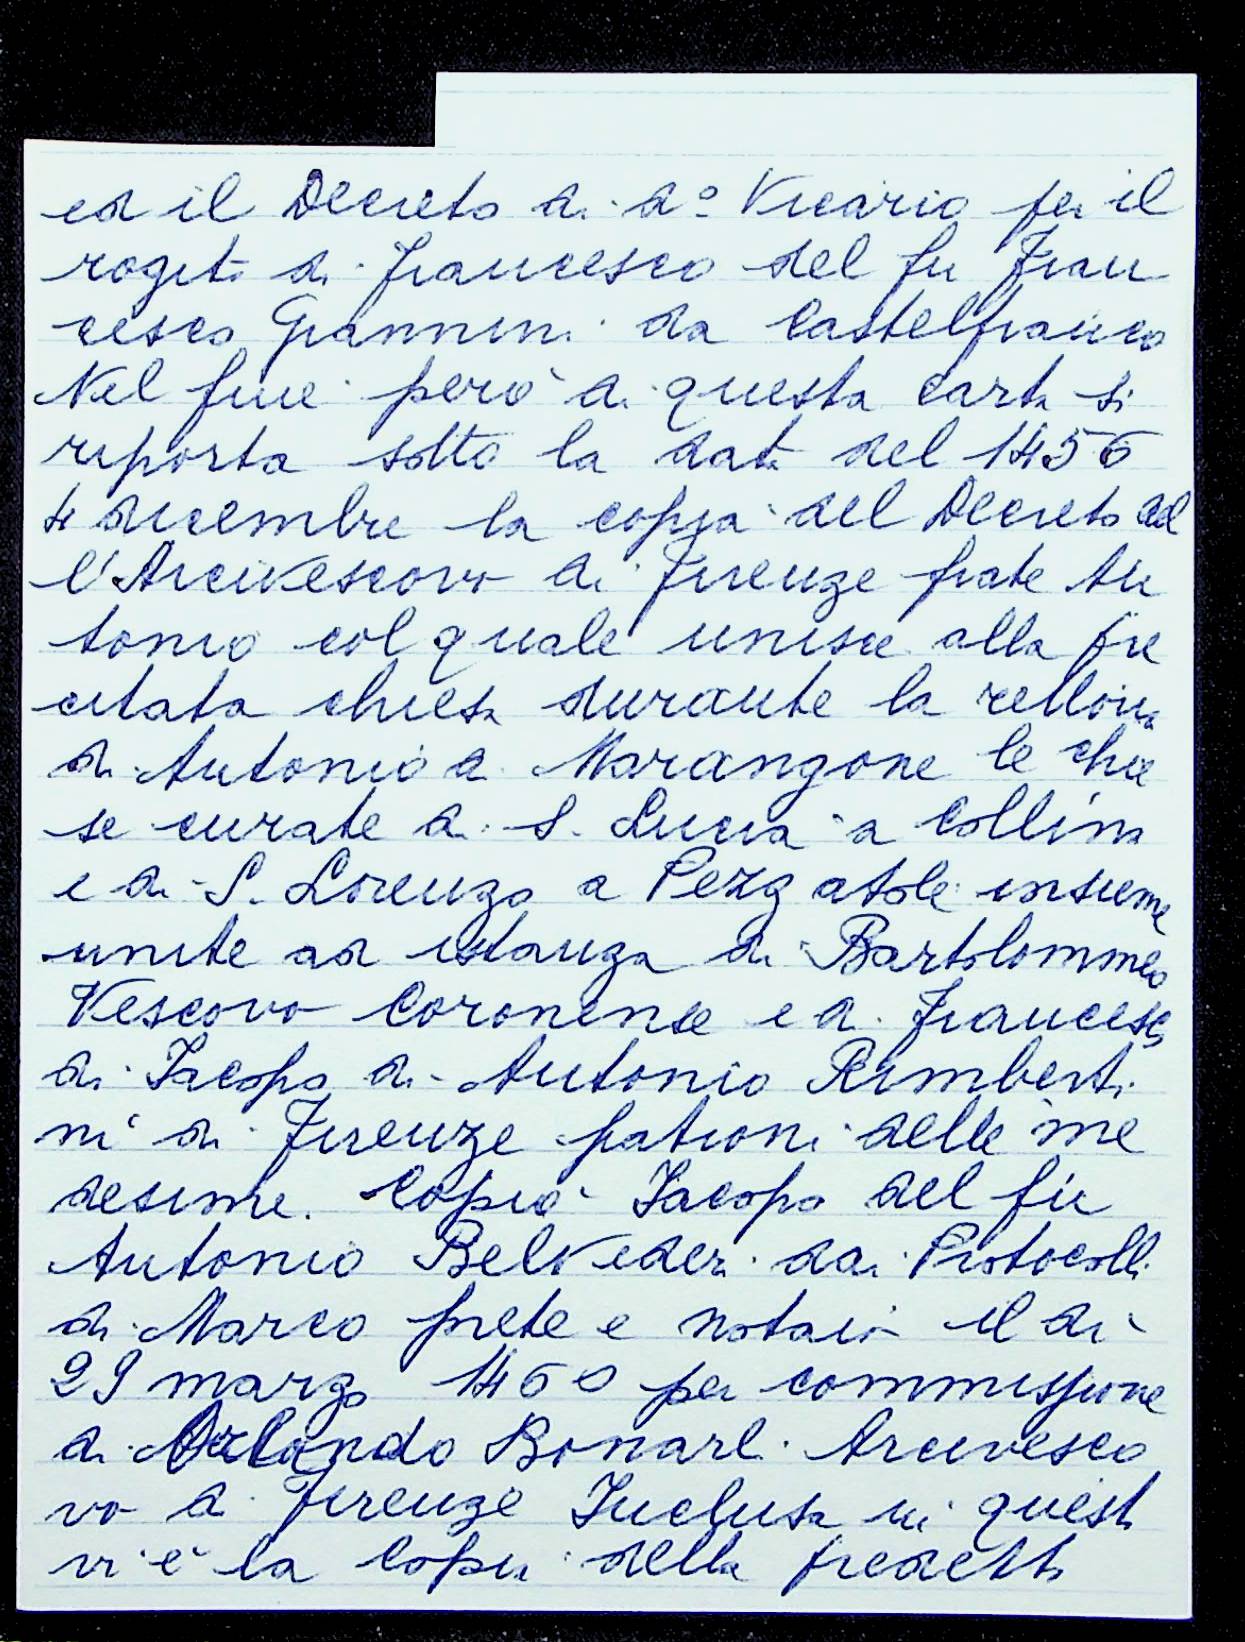 ed il Decreto di dº Vicario per il
rogito di Francesco del fu Fran
cesco Giannini da Castelfranco
Nel fine però di questa carta si
riporta sotto la data del 1456
4 dicembre la copia del Decreto del
l'Arcivescovo di Firenze frate An
tonio col quale unisce alla pre
citata chiesa durante la rettoria
di Antonio di Marangone le chie
se curate di S. Lucia a Collina
e di S. Lorenzo a Pezzatole insieme
unite ad istanza di Bartolommeo
Vescovo Coronense e di Francesco
di Iacopo di Antonio Rimberti
ni di Firenze patroni delle me
desime. Copiò Iacopo del fu
Antonio Belvederi dai Protocolli
di Marco prete e notaio il dì
29 marzo 1460 per commissione
di Orlando Bonarli Arcivesco
vo di Firenze Inclusa in questa
vi è la copia della predetta